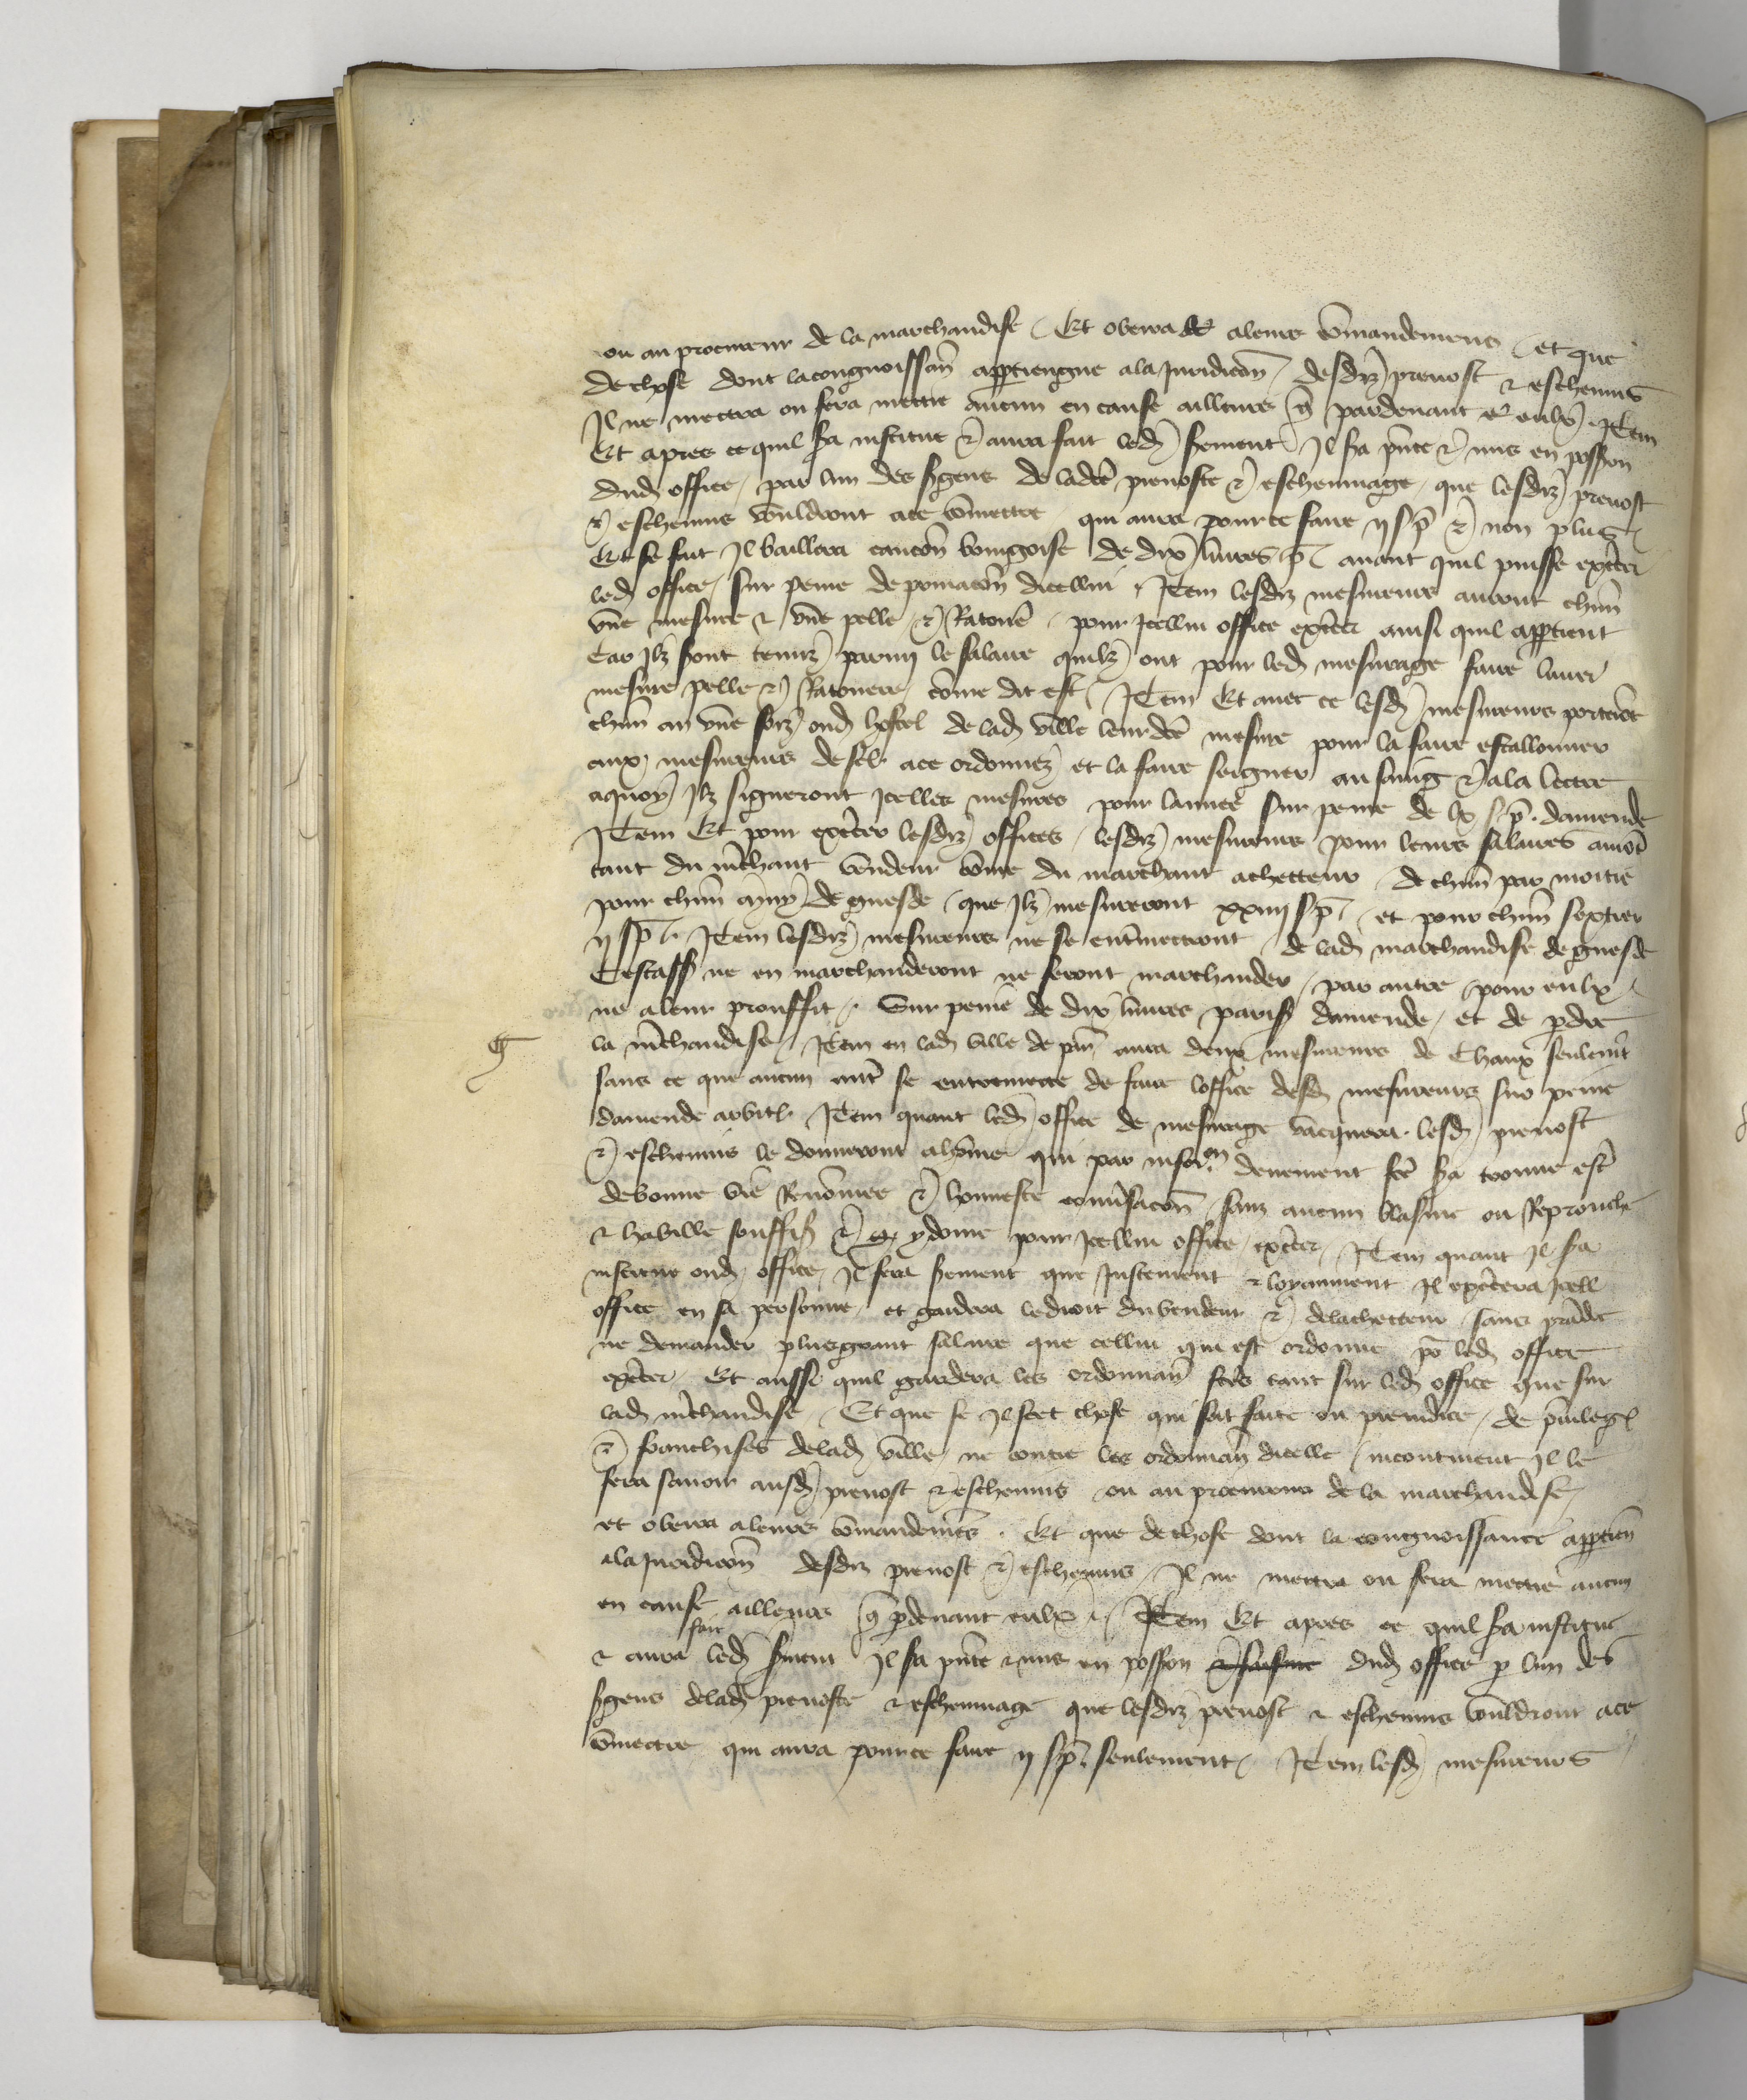 ou au procureur de la marchandise Et obeira a leurs cōmandemens et que
de chose dont la congnoissañ appartiengne a la Juridicõn desdiz prevost & eschevins
Il ne mectra ou fera mectre aucun en cause ailleurs que pardevant eulx Item
Et apres ce quil sera institue & aura fait led serement Il sera pnte & mis en possession
dud office par lun des sergens de ladicte prevoste & eschevinage que lesdiz prevost
& eschevins vouldront a ce cōmectre qui aura pour ce faire ij s p & non plus
Et se fait Il baillera caucõn bourgoise de dix livres p avant quil puisse excẽr
led office sur peine de privacõn dicellui Item lesdiz mesureurs auront chũn
une mesure & une pelle & Ratouere pour Icellui office excẽr ainsi quil appartient
Car Ilz sont tenuz parmy le salaire quilz ont pour led mesurage faire livrer
mesure pelle & Ratouere cōme dit est Item Et avec ce lesd mesureurs porterõt
chũn an une foiz oud hostel de lad ville leurdcẽ mesure pour la faire estallonner
aux mesureurs de sel a ce ordonnez et la faire seigner au saing & a la lectre
a quoy Ilz signeront Icelles mesures pour lannee sur peine de lx s p damende
Item Et pour excẽr lesdiz offices lesdiz mesureurs pour leurs salaires aurõt
tant du mchant vendeur cōme du marchant achetteur de chũn par moitie
pour chũn muy de guesde que Ilz mesureront xxiiij s p et pour chũn sextier
ij s p Item lesdiz mesureurs ne se entmectront de lad marchandise de guesde
Cestass ne en marchanderont ne feront marchander par autre pour eulx
ne a leur prouffit Sur peine de dix livres paris damende et de pdre
la mchandise Item en lad ville de par aura deux mesureurs de Chaux seulemt
sans ce que aucun autr se entremecte de faire loffice desd mesureurs sur peine
damende arbitl Item quant led office de mesurage vacquera lesd prevost
& eschevins le donneront a hōme qui par informon deuement fcẽ sera trouve estr
de bonne vie Renōmee & honneste convsacõn sans aucun blasme ou Reprouche
& habille souffis & ydoine pour Icellui office excẽr Item quant Il sera
institue oud office Il fera serement que Justement & loyaument Il excẽra Icell
office en sa personne et gardera le droit du vendeur & de lachetteur sans prãdre
ne demander plus grant salaire que cellui qui est ordonne po led office
excẽr Et aussi quil gardera les ordonnañ fcẽs tant sur led office que sur
lad mchandise Et que se Il scet chose qui soit faite ou preiudice de privilegl
& franchises de lad ville ne contre les ordonnañ dicelle incontinent Il le
fera savoir ausd prevost & eschevins ou au procureur de la marchandise
et obeira a leurs cōmandemens Et que de chose dont la congnoissance apptien
a la Juridicõn desdiz prevost & eschevins Il ne mectra ou fera mectre aucun
en cause ailleurs que pdevant eulx Item Et apres ce quil sera institue
& aura fait led serment Il sera pnte & mis en possession & saisine dud office p lun des
sergens de lad prevoste & eschevinage que lesdiz prevost & eschevins vouldront a ce
cōmectre qui aura pour ce faire ij s p seulement Item lesd mesureurs